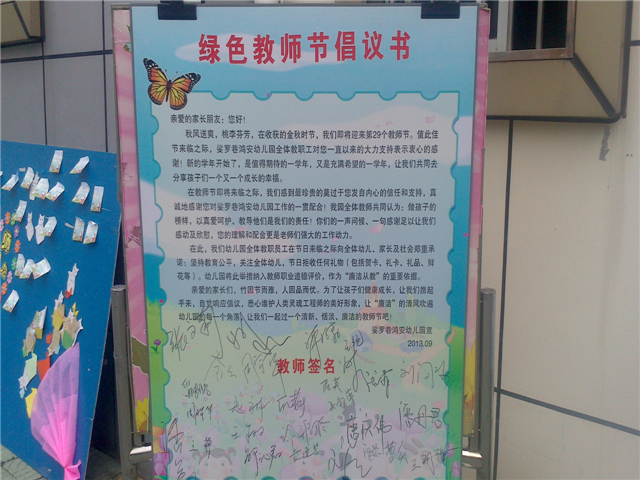 绿色教师节倡议书
亲爱的家长朋友：您好！
秋风送爽，桃李芬芳，在收获的金秋时节，我们即将迎来第29个教师节。值此佳
节来临之际，娑罗巷鸿安幼儿园全体教职工对您一直以来的大力支持表示衷心的感
谢！新的学年开始了，是值得期待的一学年，又是充满希望的一学年，让我们共同去
分享孩子们一个又一个成长的幸福。
在教师节即将来临之际，我们感到最珍贵的莫过于您发自内心的信任和支持，真
诚地感谢您对娑罗巷鸿安幼儿园工作的一贯配合！我园全体教师共同认为：做孩子的
榜样，以真爱呵护、教导他们是我们的责任！你们的一声问候、一句感谢足以让我们
感动及欣慰，您的理解和配合更是老师们强大的工作动力。
在此，我们幼儿园全体教职员工在节日来临之际向全体幼儿、家长及社会郑重承
诺：坚持教育公平，关注全体幼儿，节日拒收任何礼物（包括贺卡、礼卡、礼品、鲜
花等）。幼儿园将此举措纳入教师职业道德评价，作为“廉洁从教”的重要依据。
亲爱的家长们，竹因节而雅，人因品而优，为了让孩子们健康成长，让我们携起
手来，自觉响应倡议，悉心维护人类灵魂工程师的美好形象，让“廉洁”的清风吹遍
幼儿园的每一个角落，让我们一起过一个清新、恬淡、廉洁的教师节吧！
娑罗巷鸿安幼儿园宣
2013.09
教师签名